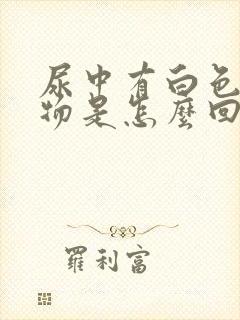 尿中有白色
物是怎麼回
羅利富